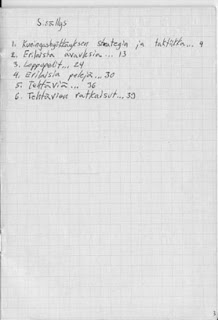 Sisällys
1. Kuningashyökkäyksen strategia ja taktiikka... 4
2. Erilaisia avauksia... 13
3. Loppupelit... 24
4. Erilaisia pelejä... 30
5. Tehtäviä... 36
6. Tehtävien ratkaisut... 39